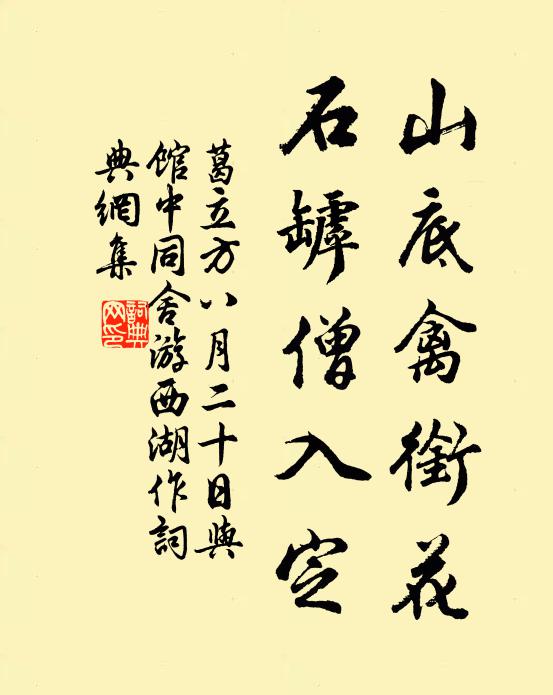 山底禽銜花
石罅僧入定
葛立方八月二十日與
館中同舍游西湖作詞
典網集
詞典網印